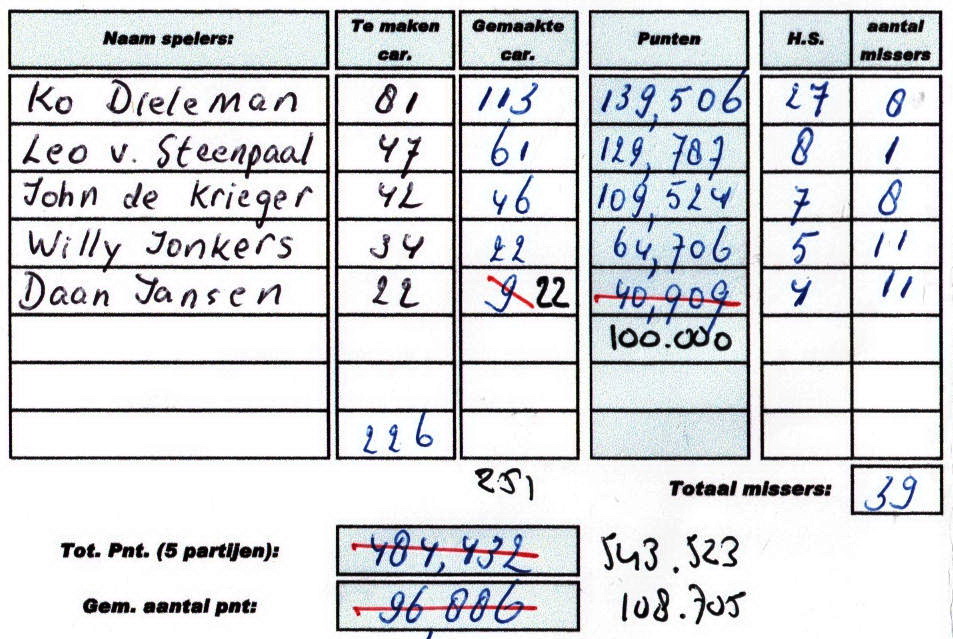 Naam spelers: Te maken car. Gemaakte car. Punten H.S. aantal missers
Ko Dieleman 81 113 139,506 27 8
Leo v. Steenpaal 47 61 129,787 8 1
John de Krieger 42 46 109,524 7 8
Willy Jonkers 34 22 64,706 5 11
Daan Jansen 22 9 22 40,909 4 11
100.000
226
251 Totaal missers: 39
Tot. Pnt. (5 partijen): 484,432 543.523
Gem. aantal pnt: 96,886 108.705